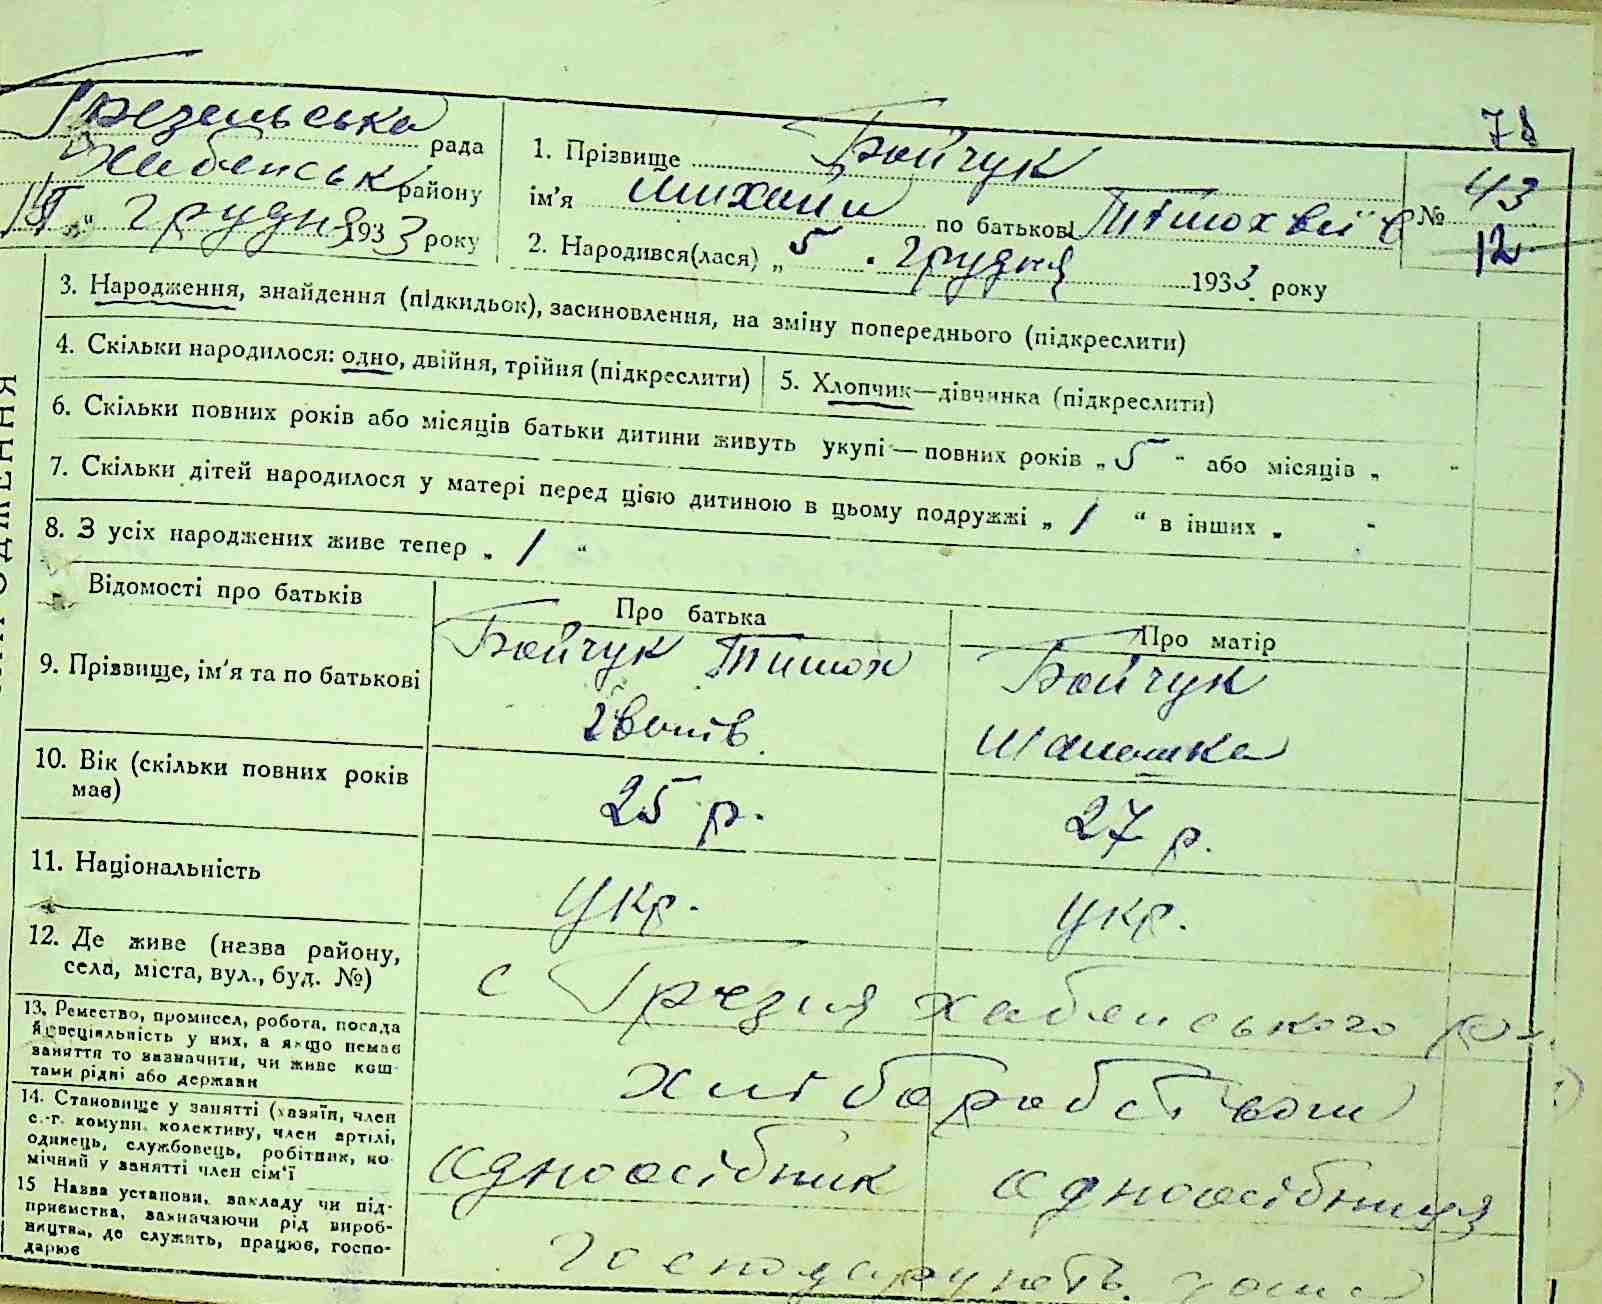 78
Грезельська рада
Хабенськ району
" грудня 1933 року
1. Прізвище Бойчук
ім'я Михайи по батькові Тімохвіїв
№ 43
12
2. Народився(лася) „ 5 . грудня 1933 року
3. Народження, знайдення (підкидьок), засиновлення, на зміну попереднього (підкреслити)
4. Скільки народилося: одно, двійня, трійня (підкреслити)
5. Хлопчик—дівчинка (підкреслити)
6. Скільки повних років або місяців батьки дитини живуть укупі — повних років „ 5 " або місяців „ "
7. Скільки дітей народилося у матері перед цією дитиною в цьому подружжі „ 1 " в інших „ "
8. З усіх народжених живе тепер „ 1 "
Відомості про батьків
Про батька
Про матір
9. Прізвище, ім'я та по батькові
Бойчук Тимох
Бойчук
10. Вік (скільки повних років
має)
25 р.
27 р.
11. Національність
укр.
укр.
12. Де живе (назва району,
села, міста, вул., буд. №)
с Грезля Хабенського
13. Ремество, промисел, робота, посада
й спеціяльність у них, а якщо немає
заняття то зазначити, чи живе кош-
тами рідні або держави
хліборобством
14. Становище у занятті (хазяїн, член
с.-г. комуни, колективу, член артілі,
одинець, службовець, робітник, по-
мічний у занятті член сім'ї
одноосібник
одноосібниця
15 Назва установи, закладу чи під-
приємства, зазначаючи рід вироб-
ництва, де служить, працює, госпо-
дарює
господарують дома